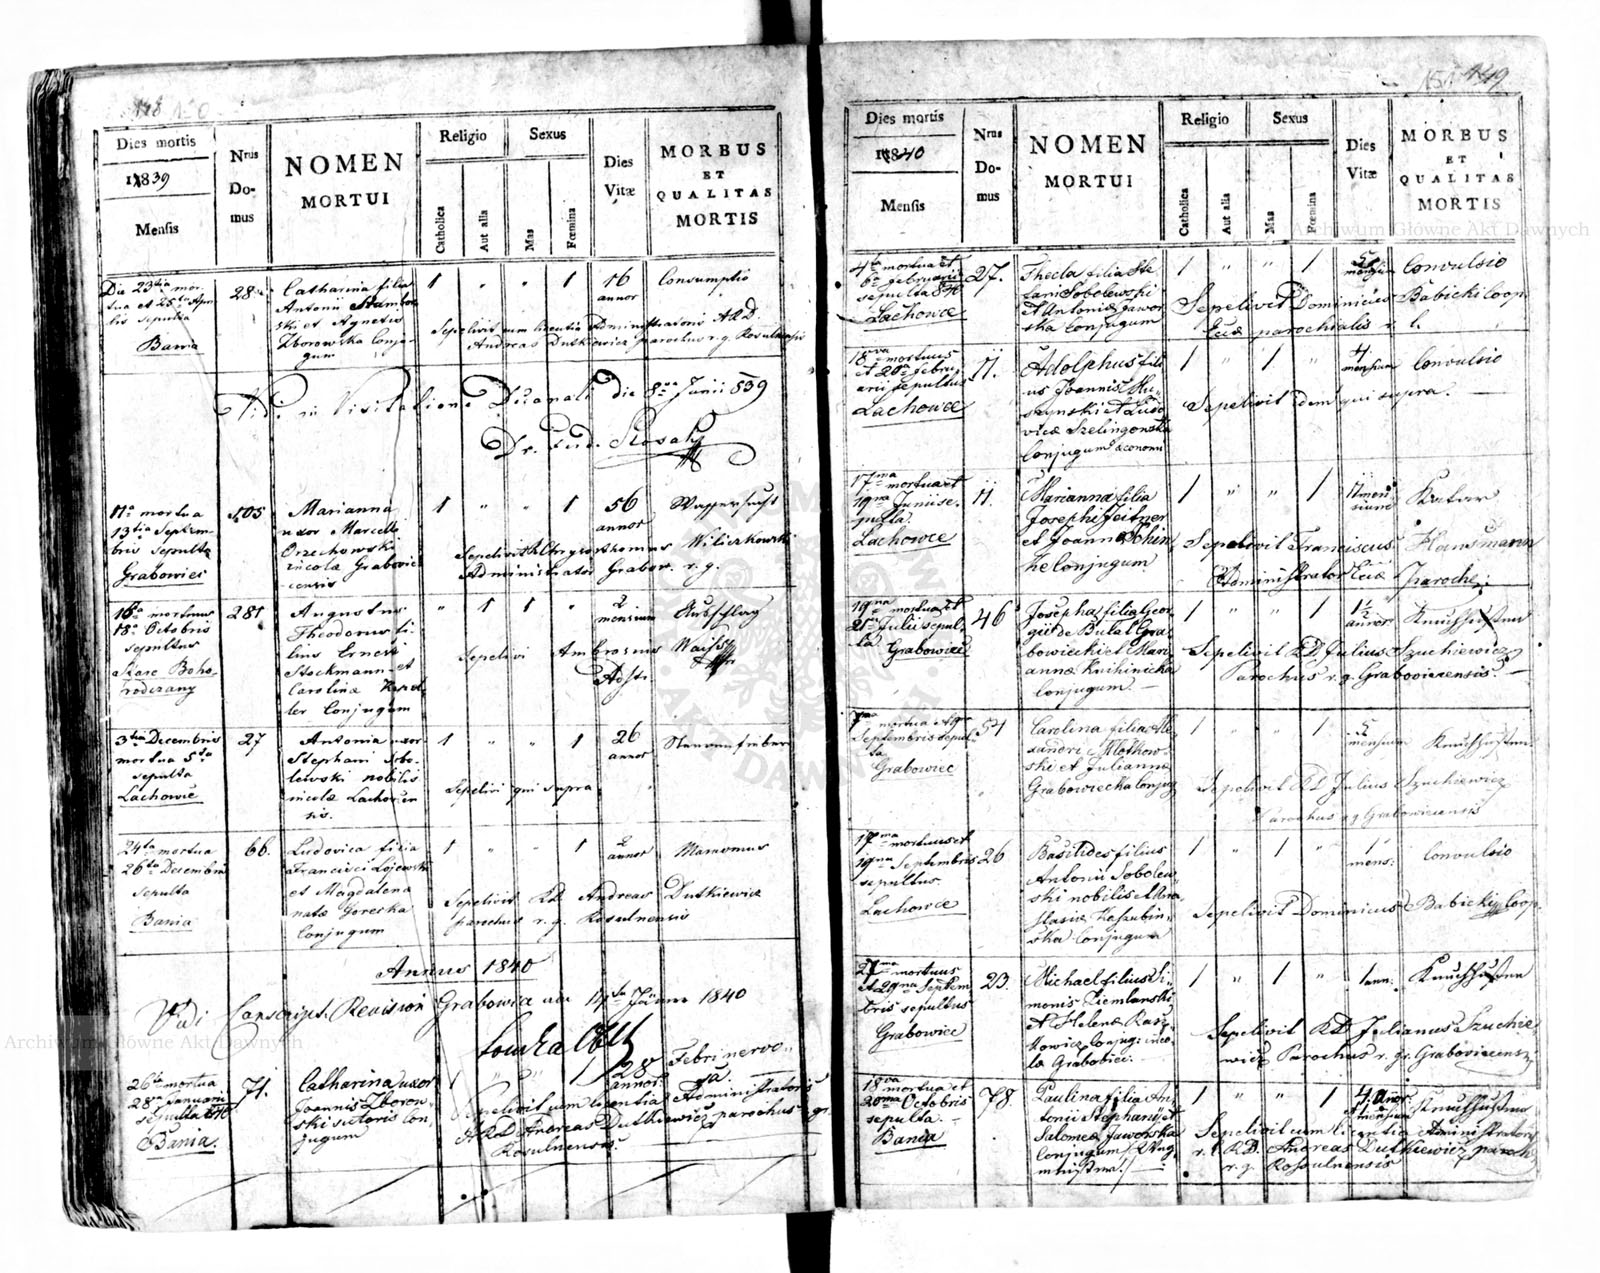 148
Dies mortis
1839
Mensis
Nrus
Do-
mus
NOMEN
MORTUI
Religio
Catholica
Aut alia
Sexus
Mas
Fœmina
Dies
Vitæ
MORBUS
ET
QUALITAS
MORTIS
Die 23tia mor
tua et 25ta Apri
lis sepulta
Bania
28
Catharina filia
Antonii
ski et Agnetis
Zborowska Conju
gum
1 " " 1
16
annor
Consumptio
Sepelivit cum licentia Administratoris ARD.
Andreas Dutkiewicz parochus r. g. Rosulnensis
in Visitatione Decanali die 8va Junii 839
11a mortua
13tia Septem
bris sepulta
Grabowiec
105
Marianna
uxor Marcelli
Orzechowski
incolæ Grabovie
censis
1 " " 1
56
annor
Wassersucht
Sepelivit Thomas Wiliczkowski
Administrator Grabow. r. g.
16ta mortuus
18a Octobris
sepultus
Stare Boho
rodczany
281
Augustus
Theodorus fi
lius Ernesti
Stockmann et
Carolinæ
ler Conjugum
" 1 1 "
2
mensium
Ausschlag
Sepelivi Ambrosius Waiss
3tia Decembris
mortua 5ta
sepulta
Lachowce
27
Antonia uxor
Stephani Sobo
lewski nobilis
incolæ Lachovien
sis.
1 " " 1
26
annor
Nervenfieber
Sepelivi qui supra
24ta mortua
26ta Decembris
sepulta
Bania
66.
Ludovica filia
Francisci Lojewski
et Magdalena
natæ Gorecka
Conjugum
1 " " 1
2
annor
Marasmus
Sepelivit RD. Andreas Dutkiewicz
parochus r. g. Rosulnensis
Annus 1840
Vidi Conscript. Revision Grabowca am 14ta Jänner 1840
26ta mortua
28va Januarii
sepulta 840
Bania.
71.
Catharina uxor
Joannis Zborow
ski sutoris Con
jugum
1 " " 1
28
annor.
Febri nervo
sa
Sepelivit cum licentia Administratoris
ARD Andreas Dutkiewicz parochus gr
Rosulnensis.
151 449
Dies mortis
1840
Mensis
Nrus
Do-
mus
NOMEN
MORTUI
Religio
Catholica
Aut alia
Sexus
Mas
Fœmina
Dies
Vitæ
MORBUS
ET
QUALITAS
MORTIS
4ta mortua et
6ta februarii
sepulta 840
Lachowce
27.
Thecla filia Ste
fani Sobolewski
et Antoniæ Jawor
ska Conjugum
1 " " 1
5
mensium
Convulsio
Sepelivit Dominicus Babicki Coop.
Ecæ parochialis r. l.
18va mortuus
et 20a febru
arii sepultus
Lachowce
11.
Adolphus fili
us Joannis
et Ludo
vicæ Szelingowska
Conjugum œconomi
1 " 1 "
4
mensium
Convulsio
Sepelivit idem qui supra.
17ma mortua et
19na Junii se
pulta
Lachowce
11.
Marianna filia
Josephi Zeitner
et Joannæ Schin
ke Conjugum
1 " " 1
11 men
sium
Katar
Sepelivit Franciscus Hausmann
Administrator Ecæ Paroch:
19na mortua et
21a Julii sepul
ta Grabowiec
46
Josepha filia Geor
gii de Bulat Gra
bowiecki et Mari
annæ Knihinicka
Conjugum
1 " " 1
1½
annor
Keuchhusten
Sepelivit RD Julius Szuchiewicz
Parochus r. g. Graboviecensis.
mortua
Septembris sepul
ta
Grabowiec
54
Carolina filia Ale
xandri Mlotkow
ski et Julianna
Grabowiecka Conjug
1 " " 1
5
mensium
Keuchhusten
Sepelivit RD Julius Szuchiewicz
Parochus r g Graboviecensis
17ma mortuus et
19na Septembris
sepultus.
Lachowce
26
Basilides filius
Antonii Sobolew
ski nobilis et Ana
stasiæ Kaszubin
ska Conjugum
1
mens:
Convulsio
Sepelivit Dominicus Babicki Coop.
27ma mortuus
et 29na Septem
bris sepultus
Grabowiec
23.
Michael filius Si
monis Ziemlanski
et Helenæ Kasz
kowicz Conjug: inco
læ Graboviec:
1 " 1 "
1 ann:
Keuchhusten
Sepelivit RD Julianus Szuchie
wicz Parochus r. gr. Graboviecensis
18va mortua et
20ma Octobris
sepulta.
Bania
78.
Paulina filia An
tonii Stephany et
Salomeæ Jaworska
Conjugum
1 " " 1
4 annor
mensium
Keuchhusten
Sepelivit cum licentia Administratoris
r. l. RD. Andreas Dutkiewicz paroch
r. g. Rossulnensis
Archiwum Główne Akt Dawnych
Archiwum Główne Akt Dawnych